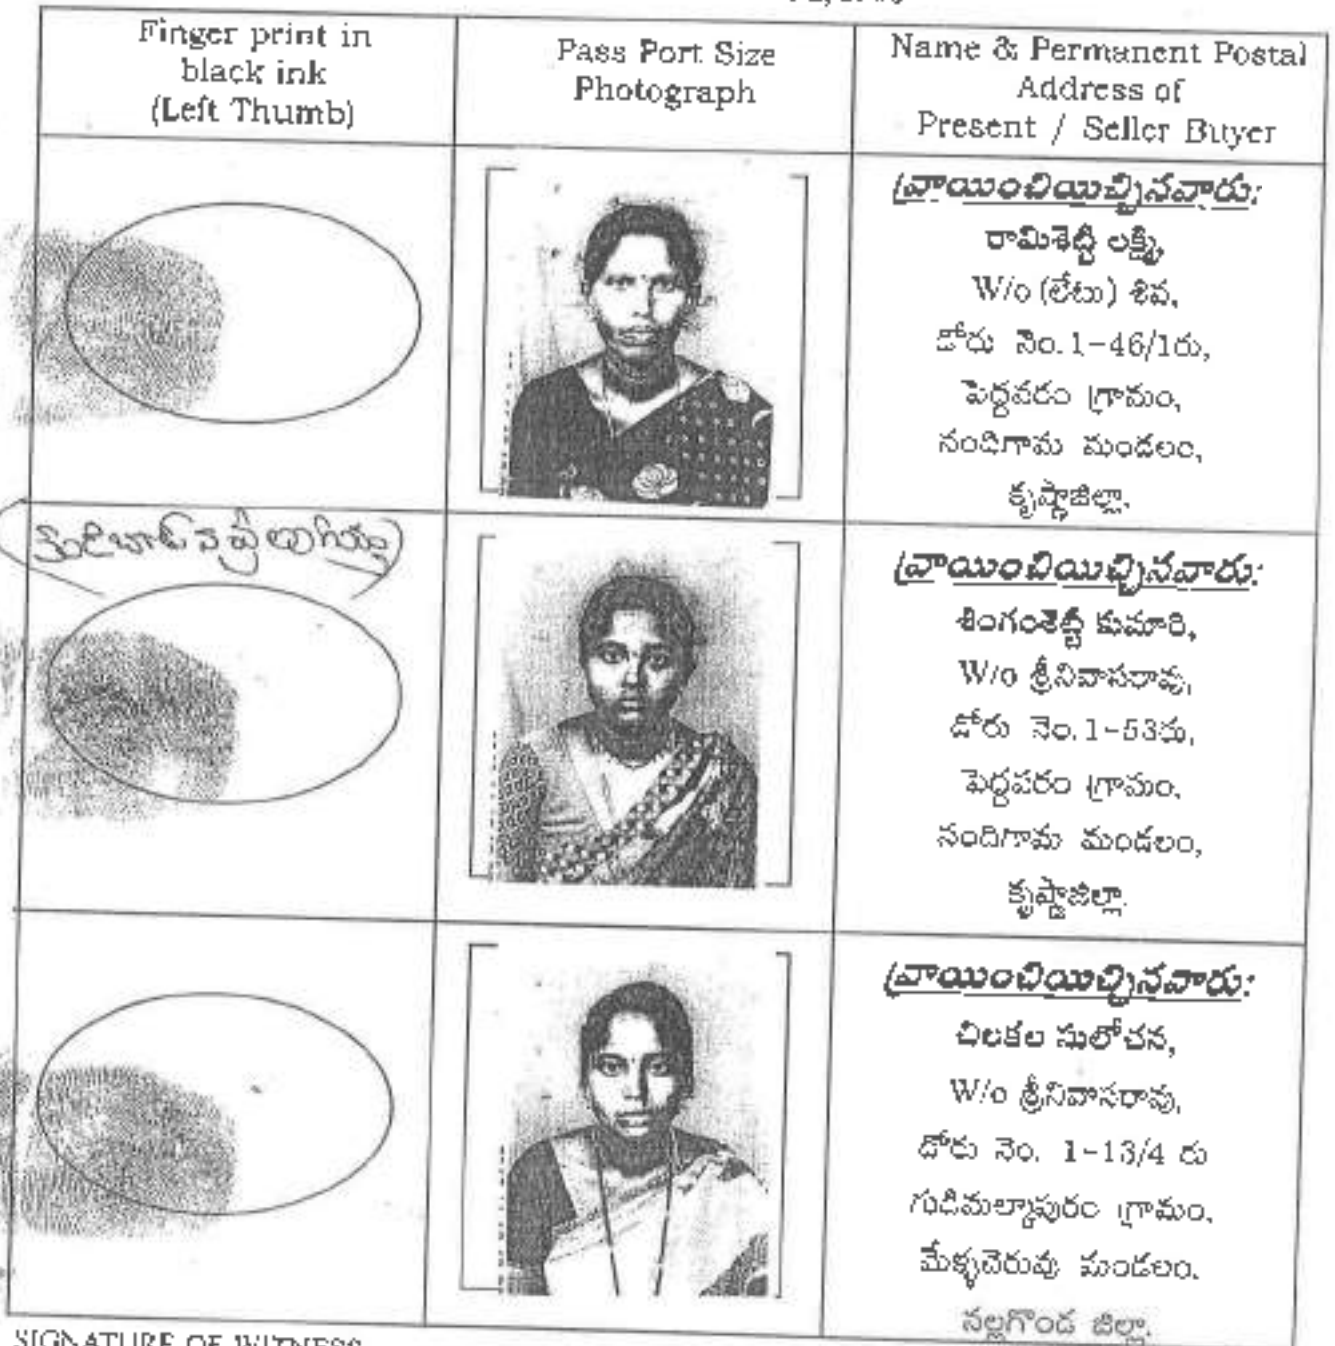 Finger print in
black ink
(Left Thumb)
Pass Port Size
Photograph
Name & Permanent Postal
Address of
Present / Seller Buyer
వ్రాయించియిచ్చినవారు:
రామిశెట్టి లక్ష్మి,
W/o (లేటు) శివ,
డోరు నెం.1-46/1రు,
పెద్దవరం గ్రామం,
నందిగామ మండలం,
కృష్ణాజిల్లా.
వ్రాయించియిచ్చినవారు:
శింగంశెట్టి కుమారి,
W/o శ్రీనివాసరావు,
డోరు నెం.1-53రు,
పెద్దవరం గ్రామం,
నందిగామ మండలం,
కృష్ణాజిల్లా.
వ్రాయించియిచ్చినవారు:
చిలకల సులోచన,
W/o శ్రీనివాసరావు,
డోరు నెం. 1-13/4 రు
గుడిమల్కాపురం గ్రామం,
మేళ్ళచెరువు మండలం.
నల్లగొండ జిల్లా.
SIGNATURE OF WITNESS